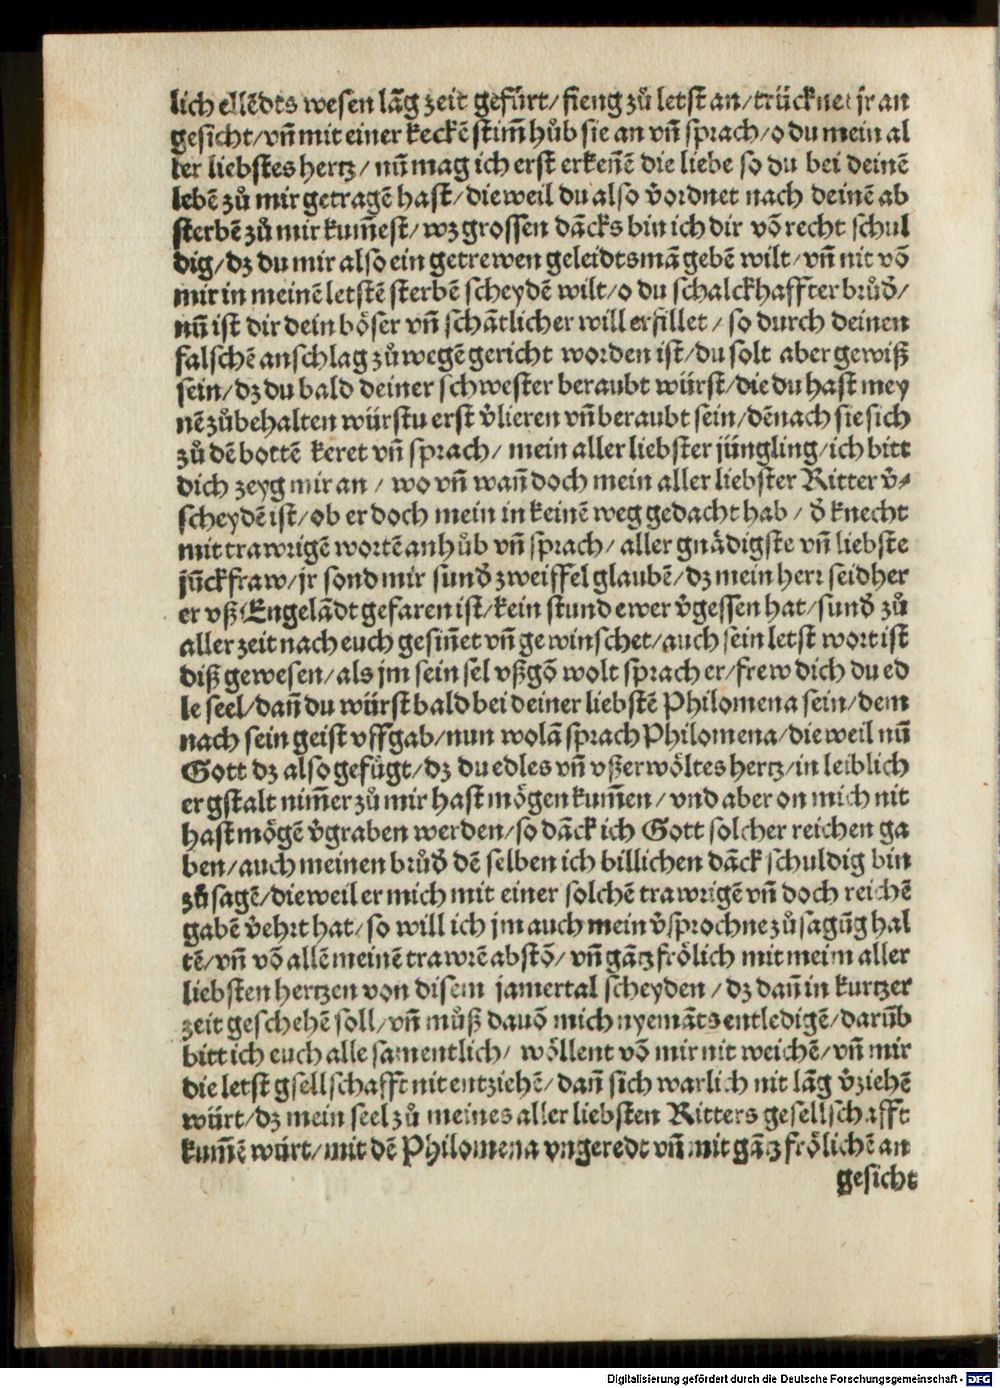 lich ellēdts wesen lāg zeit gefürt/ fieng zů letst an/ trücknet jr an
gesicht/ vn̄ mit einer keckē stim̄ hůb sie an vn̄ sprach/ o du mein al
ler liebstes hertz/ nun̄ mag ich erst erken̄ē die liebe so du bei deinē
lebē zů mir getragē hast/ dieweil du also v̄ordnet nach deinē ab
sterbē zů mir kum̄est/ wz grossen dācks bin ich dir vō recht schul
dig/ dz du mir also ein getrewen geleidtsmā gebē wilt/ vn̄ nit vō
mir in meinē letstē sterbē scheydē wilt/ o du schalckhaffter brůd̄/
nun̄ ist dir dein böser vn̄ schātlicher will erfillet/ so durch deinen
falschē anschlag zů wegē gericht worden ist/ du solt aber gewiß
sein/ dz du bald deiner schwester beraubt würst/ die du hast mey
nē zůbehalten würstu erst v̄lieren vn̄ beraubt sein/ dēnach sie sich
zů dē bottē keret vn̄ sprach/ mein aller liebster jüngling/ ich bitt
dich zeyg mir an/ wo vn̄ wan̄ doch mein aller liebster Ritter v̄⸗
scheydē ist/ ob er doch mein in keinē weg gedacht hab/ d̄ knecht
mit trawrigē wortē anhůb vn̄ sprach/ aller gnädigste vn̄ liebste
jūckfraw/ jr sond mir sund̄ zweiffel glaubē/ dz mein herr seidher
er vß Engelādt gefaren ist/ kein stund ewer v̄gessen hat/ sund̄ zů
aller zeit nach euch gesin̄et vn̄ gewinschet/ auch sein letst wort ist
diß gewesen/ als jm sein sel vßgō wolt sprach er/ frew dich du ed
le seel/ dan̄ du würst bald bei deiner liebstē Philomena sein/ dem
nach sein geist vffgab/ nun wolā sprach Philomena/ dieweil nun̄
Gott dz also gefügt/ dz du edles vn̄ vßerwöltes hertz/ in leiblich
er gstalt nim̄er zů mir hast mögen kum̄en/ vnd aber on mich nit
hast mögē v̄graben werden/ so dāck ich Gott solcher reichen ga
ben/ auch meinen brůd̄ dē selben ich billichen dāck schuldig bin
zů sagē/ dieweil er mich mit einer solchē trawrigē vn̄ doch reichē
gabē v̄ehrt hat/ so will ich jm auch mein v̄sprochne zůsagūg hal
tē/ vn̄ vō allē meinē trawrē abstō/ vn̄ gātz frölich mit meim aller
liebsten hertzen von disem jamertal scheyden/ dz dan̄ in kurtzer
zeit geschehē soll/ vn̄ můß dauō mich nyemāts entledigē/ darūb
bitt ich euch alle samentlich/ wöllent vō mir nit weichē/ vn̄ mir
die letst gsellschafft nit entziehē/ dan̄ sich warlich nit lāg v̄ziehē
würt/ dz mein seel zů meines aller liebsten Ritters gesellschafft
kum̄ē würt/ mit dē Philomena vngeredt vn̄ mit gātz frölichē an
gesicht
Digitalisierung gefördert durch die Deutsche Forschungsgemeinschaft - DFG